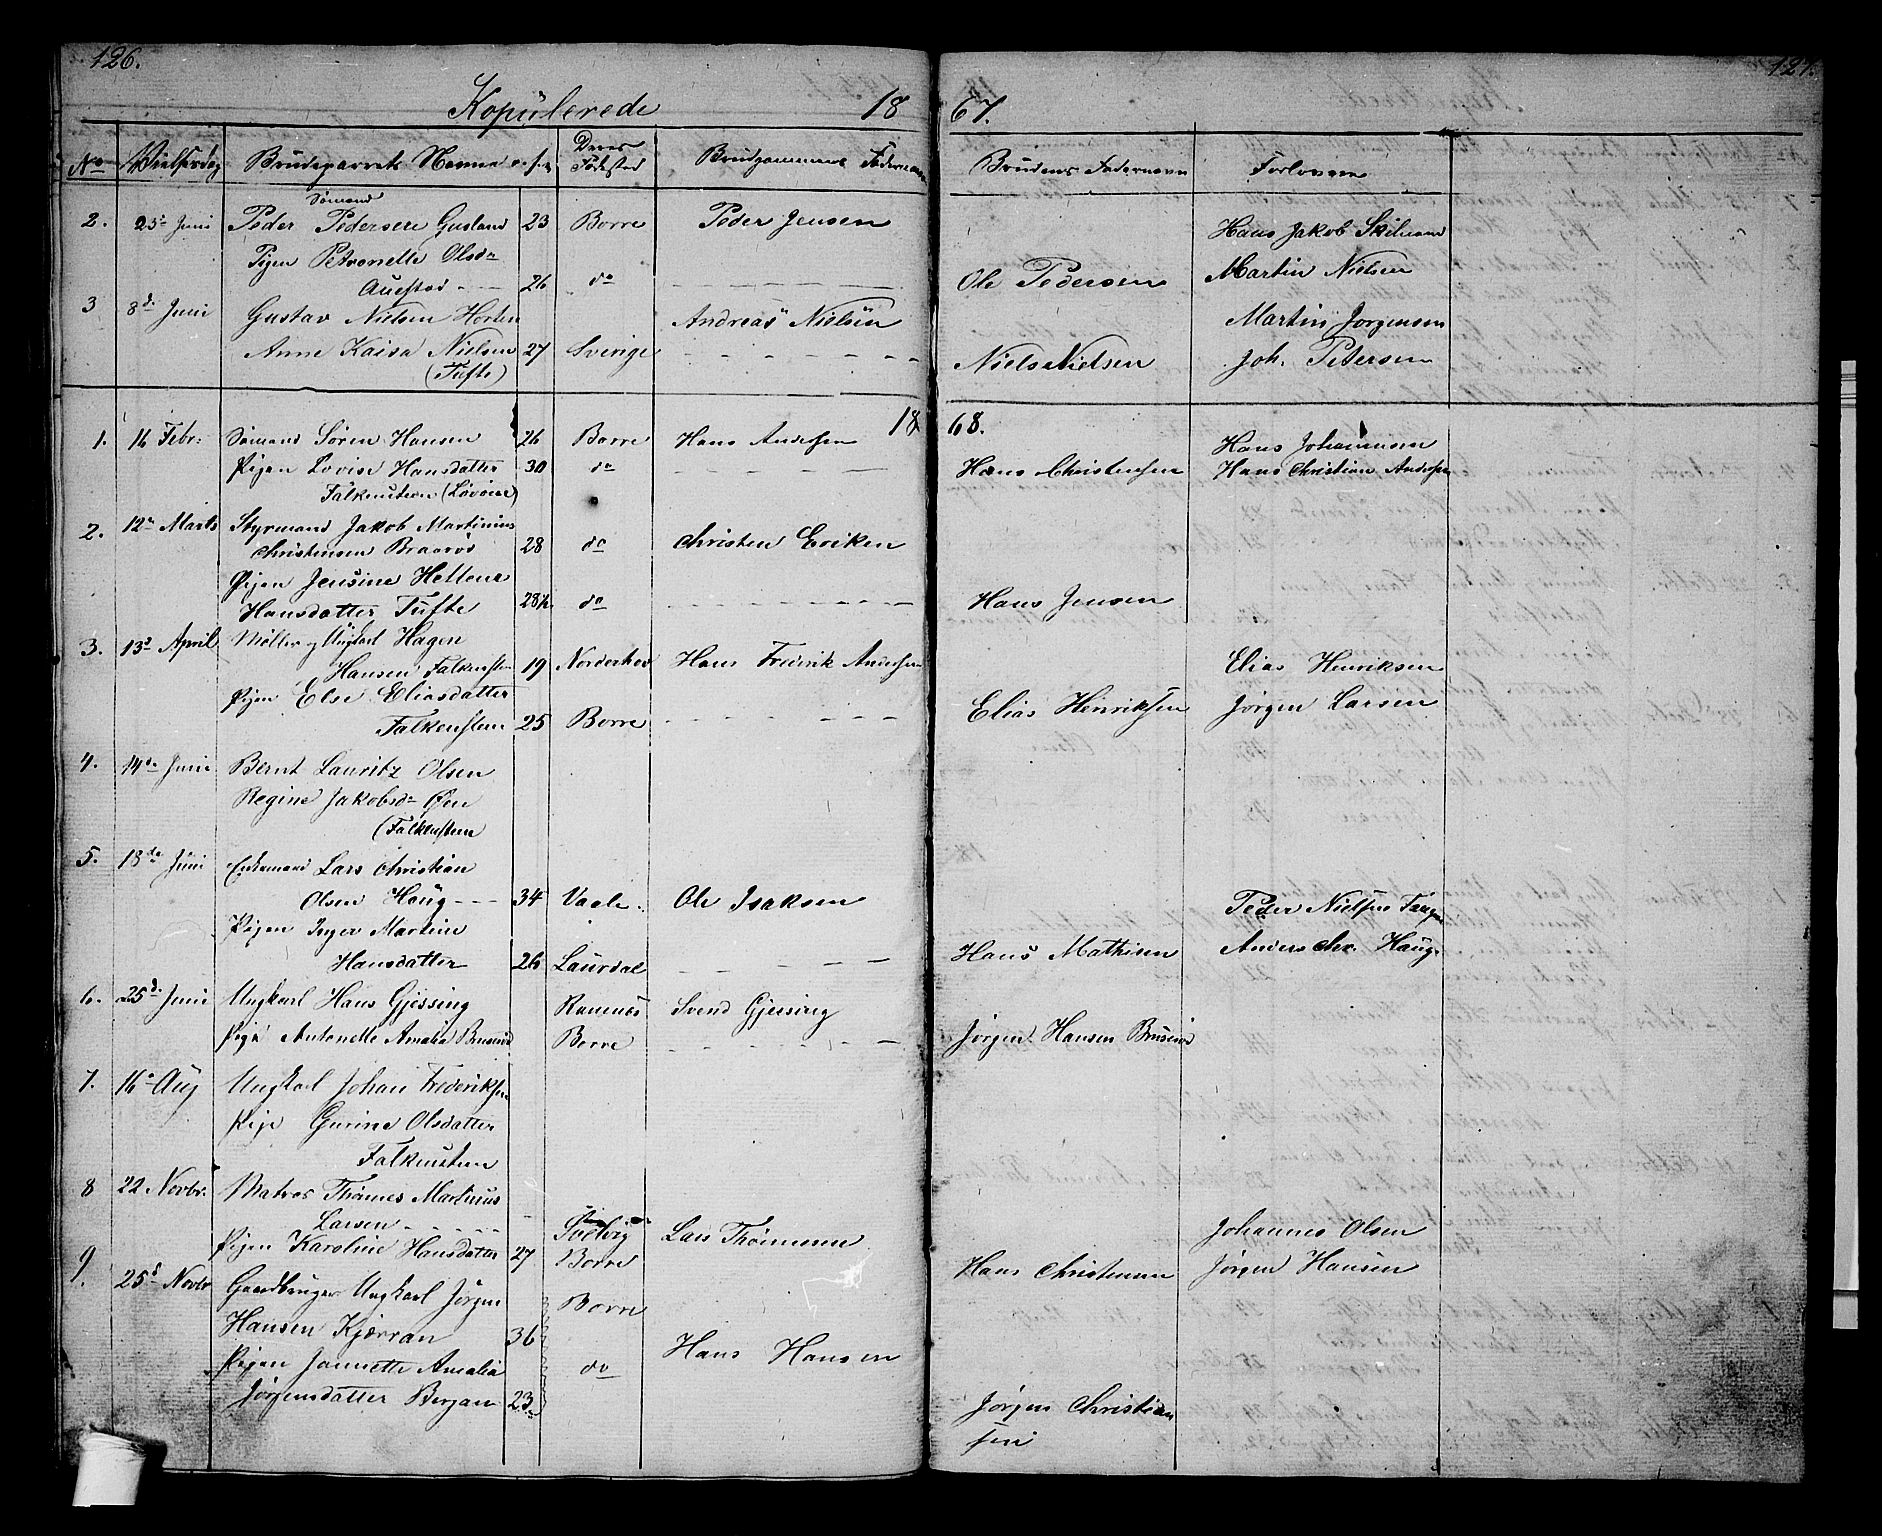 126.
127.
Kopulerede 18 67.
No Vielsesdag Brudeparrets Navne Deres Fødested Brudgommens Fadernavn Brudens Fadernavn Forlovere
Sømand
2. 23de Juni Peder Pedersen 23 Borre Peder Jensen Hans Jakob
Pigen Petronelle Olsdr
26 do Ole Pedersen Martin Nielsen
3 8de Juni Gustav Nielsen Horten Andreas Nielsen Martin Jørgensen
Anne Kaisa Nielsen 27 Sverige Niels Nielsen Joh. Petersen
(Tufte)
18 68.
1. 16 Febr: Sømand Søren Hansen 26 Borre Hans Andersen Hans Johannesen
Pigen Lovise Hansdatter 30 do Hans Christensen Hans Christian Andersen
Falkensteen (Løvøen)
2. 12te Marts Styrmand Jakob Martinius
Christensen Braarød 28 do Christen Eriken
Pigen Jensine Helene
Hansdatter Tufte 28½ do Hans Jensen
3. 13de April Møller og Ungkarl Hagen
Hansen Falkensten 19 Norderhov Hans Frederik Andersen Elias Henriksen
Pigen Else Eliasdatter
Falkensteen 25 Borre Elias Henriksen Jørgen Larsen
4. 14de Juni Bernt Lauritz Olsen
Regine Jakobsdr Øen
(Falkensteen
5. 18de Juni Enkemand Lars Christian
Olsen Haug 34 Vaale Ole Isaksen Peder Nielsen
Pigen Inger Martine
Hansdatter 26 Laurdal Hans Mathisen Anders Chr. Haug
6. 25de Juni Ungkarl Hans Gjessing Ramnæs Svend Gjessing
Pige Antonette Amalia Borre Jørgen Hansen
7. 16de Aug Ungkarl Johan Frederiksen
Pige Gurine Olsdatter
Falkensteen
8 22 Novbr. Matros Thomes Martinius
Larsen Svelvig Lars Thømesen Johannes Olsen
Pigen Karoline Hansdatter 27 Borre Hans Christensen Jørgen Hansen
9. 25de Novbr Gaardbruger Ungkarl Jørgen Borre
Hansen Kjærran 36 Hans Hansen
Pigen Jannette Amalia do
Jørgensdatter Bergan 23 Jørgen Christian
sen